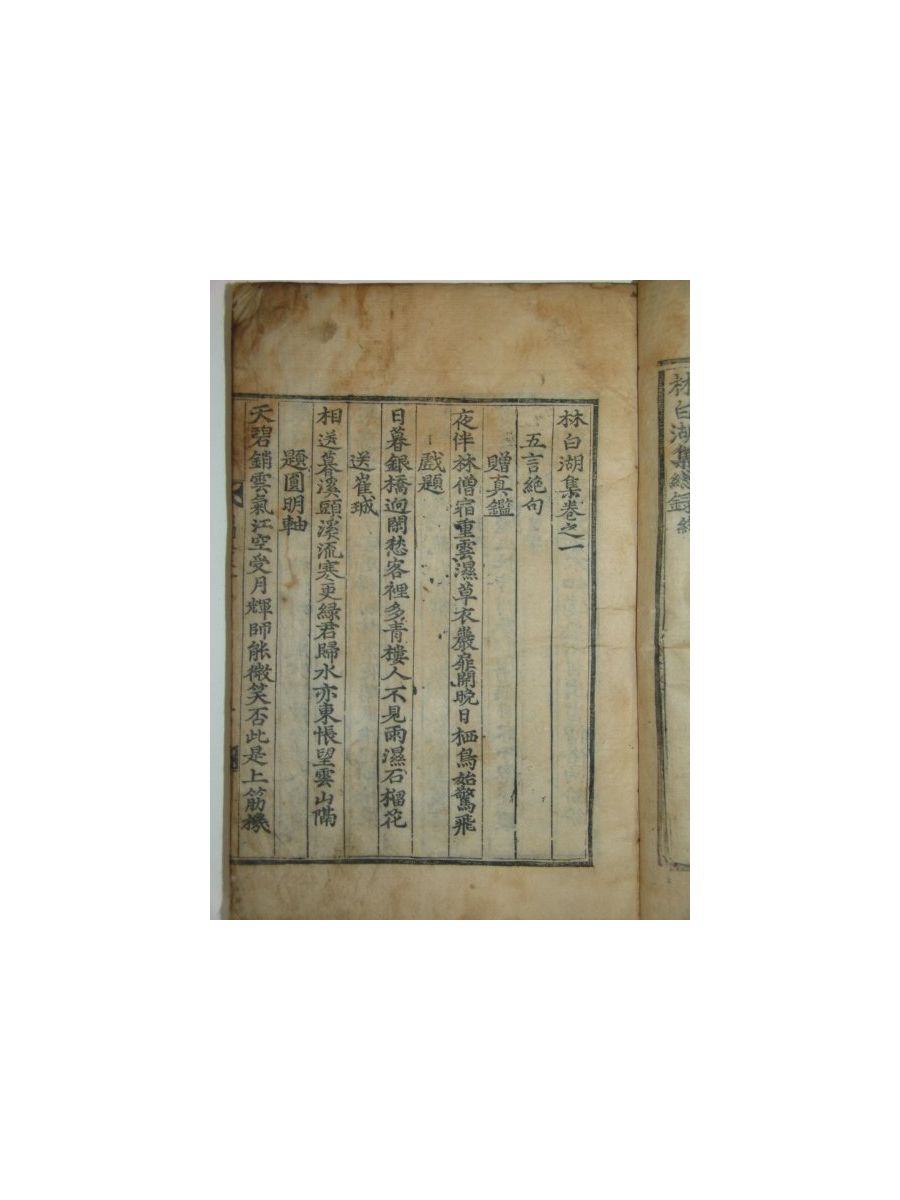 林白湖集總錄終
林白湖集卷之一
五言絶句
贈真鑑
夜伴林僧宿重雲濕草衣巖扉開晚日栖鳥始驚飛
戲題
日暮銀橋逈閑愁客裡多青樓人不見雨濕石榴花
送崔珹
相送暮溪頭溪流寒更綠君歸水亦東悵望雲山隔
題圓明軸
天碧銷雲氣江空受月輝師能微笑否此是上筋機